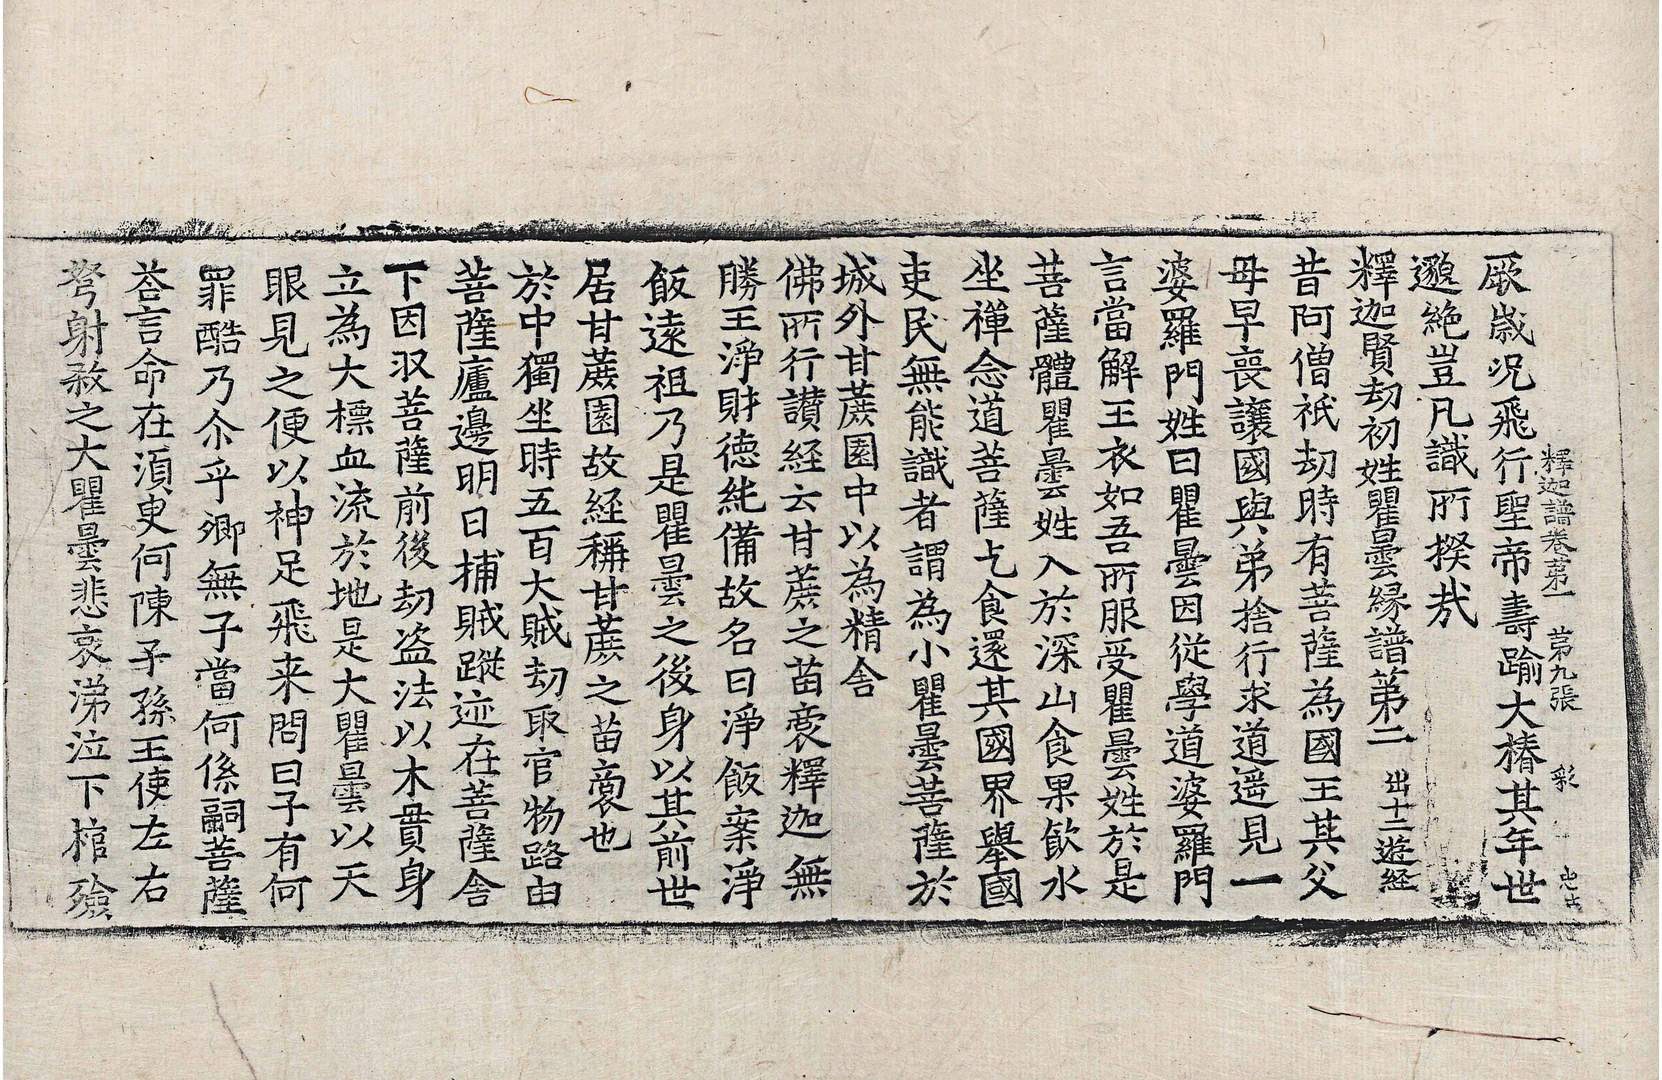 釋迦譜卷第一 第九張 彩
厥歲況飛行聖帝壽踰大椿其年世
邈絶豈凡識所揆㢤
釋迦賢劫初姓瞿曇縁譜第二 出十二遊経
昔阿僧祇劫時有菩薩為國王其父
母早喪讓國與弟捨行求道遥見一
婆羅門姓曰瞿曇因從學道婆羅門
言當解王衣如吾所服受瞿曇姓於是
菩薩體瞿曇姓入於深山食果飲水
坐禪念道菩薩乞食還其國界舉國
吏民無能識者謂為小瞿曇菩薩於
城外甘蔗園中以為精舍
佛所行讃経云甘蔗之苗裔釋迦無
勝王淨財德純備故名曰淨飯案淨
飯遠祖乃是瞿曇之後身以其前世
居甘蔗園故経稱甘蔗之苗裔也
於中獨坐時五百大賊劫取官物路由
菩薩廬邊明日捕賊蹤迹在菩薩舎
下因収菩薩前後劫盗法以木貫身
立為大標血流於地是大瞿曇以天
眼見之便以神足飛来問曰子有何
罪酷乃尒乎卿無子當何係嗣菩薩
荅言命在湏臾何陳子孫王使左右
弩射煞之大瞿曇悲哀涕泣下棺殮